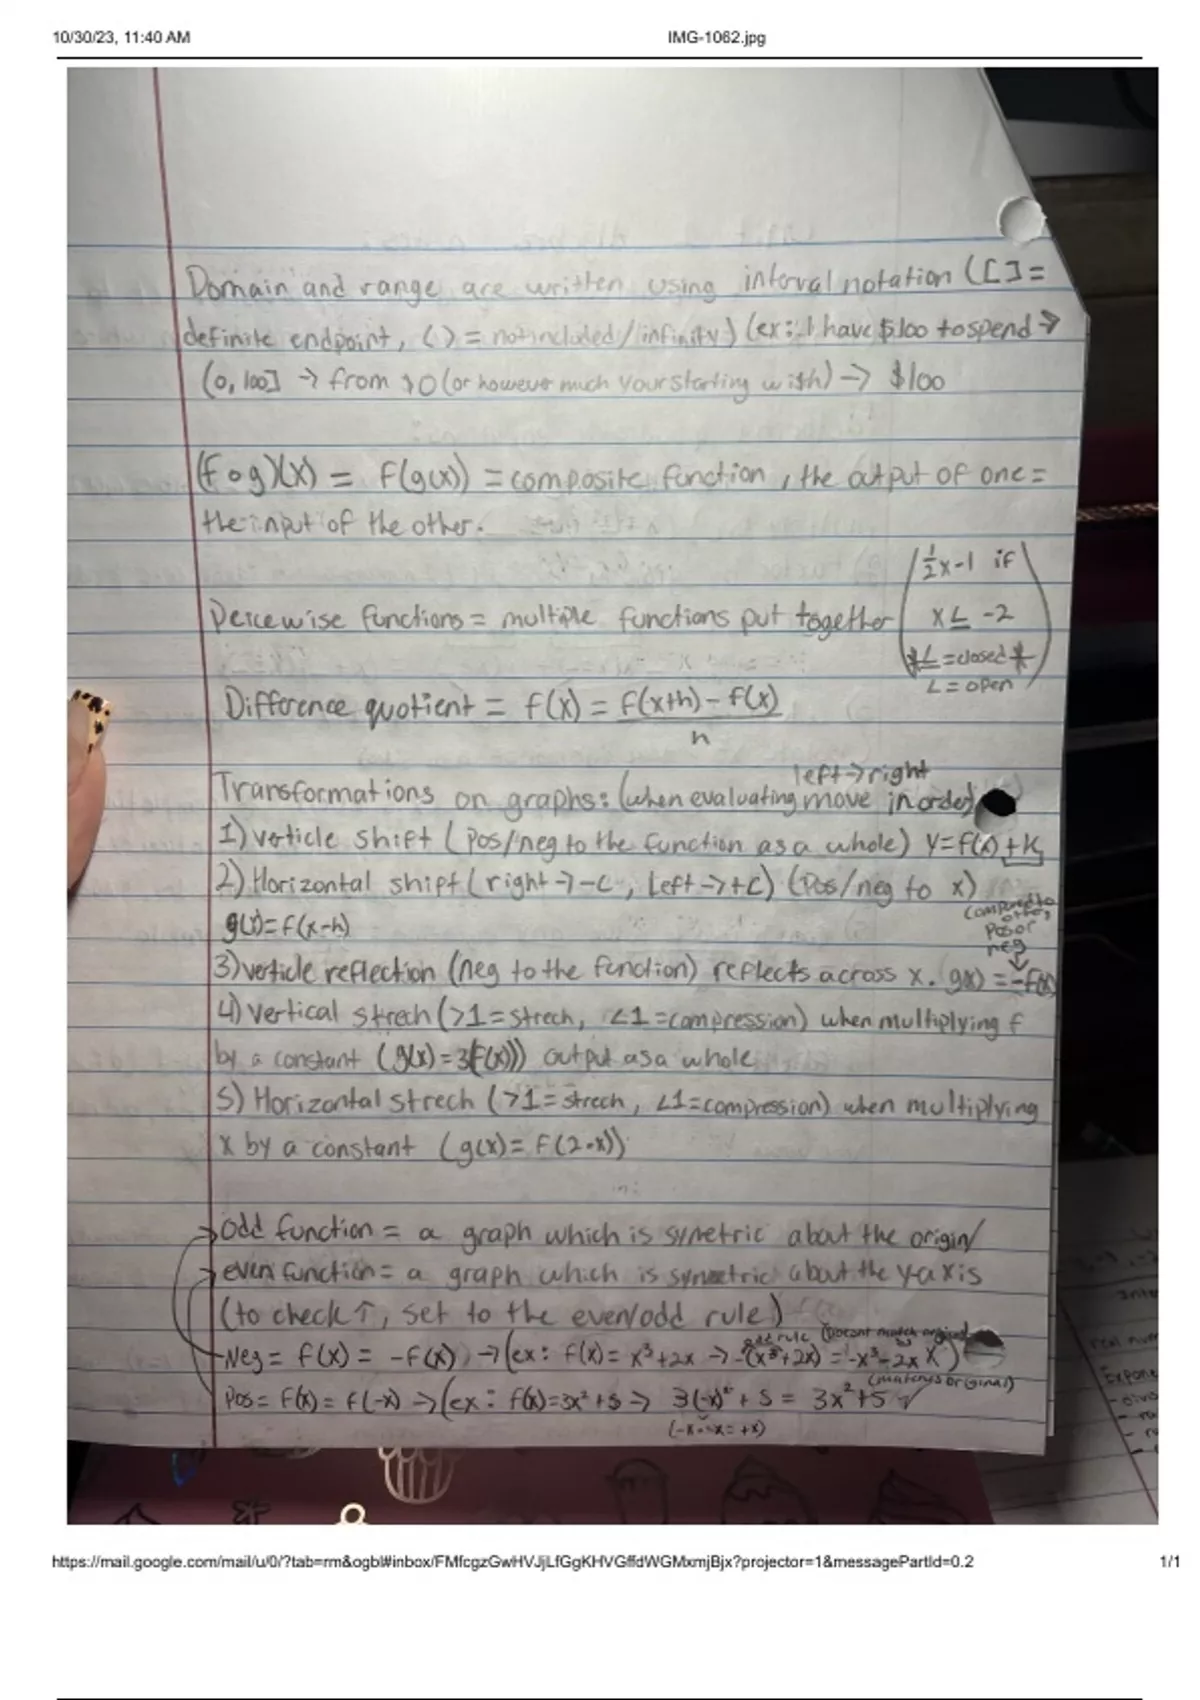 10/30/23, 11:40 AM
IMG-1062.jpg
Domain and range are written using interval notation ([] =
definite endpoint, ( ) = not included/infinity) (ex: I have $100 to spend →
(0, 100] → from $0 (or however much your starting with) → $100
(f∘g)(x) = f(g(x)) = composite function, the output of one =
the input of the other.
Peicewise functions = multiple functions put together
1/2x-1 if
x ≤ -2
*≤ = closed*
< = open
Difference quotient = f(x) = f(x+h) - f(x)
h
left → right
Transformations on graphs: (when evaluating move in order)
1) verticle shift (pos/neg to the function as a whole) y=f(x)+k
2) Horizontal shift (right → -c, left → +c) (pos/neg to x)
g(x)=f(x-h)
(compared to
other,
pos or
neg
3) verticle reflection (neg to the function) reflects across x. g(x) = -f(x)
4) vertical strech (>1 = strech, <1 = compression) when multiplying f
by a constant (g(x) = 3(f(x))) output as a whole
5) Horizontal strech (>1 = strech, <1 = compression) when multiplying
x by a constant (g(x) = f(2·x))
odd function = a graph which is symetric about the origin/
even function = a graph which is symmetric about the y-axis
(to check ↑, set to the even/odd rule)
odd rule (Doesnt match original)
Neg = f(x) = -f(x) → (ex: f(x) = x³+2x → -(x³+2x) = -x³-2x X)
(matches original)
Pos = f(x) = f(-x) → (ex: f(x)=3x²+5 → 3(-x)²+5 = 3x²+5 ✓
(-x·-x = +x)
https://mail.google.com/mail/u/0/?tab=rm&ogbl#inbox/FMfcgzGwHVJjLfGgKHVGffdWGMxmjBjx?projector=1&messagePartId=0.2
1/1